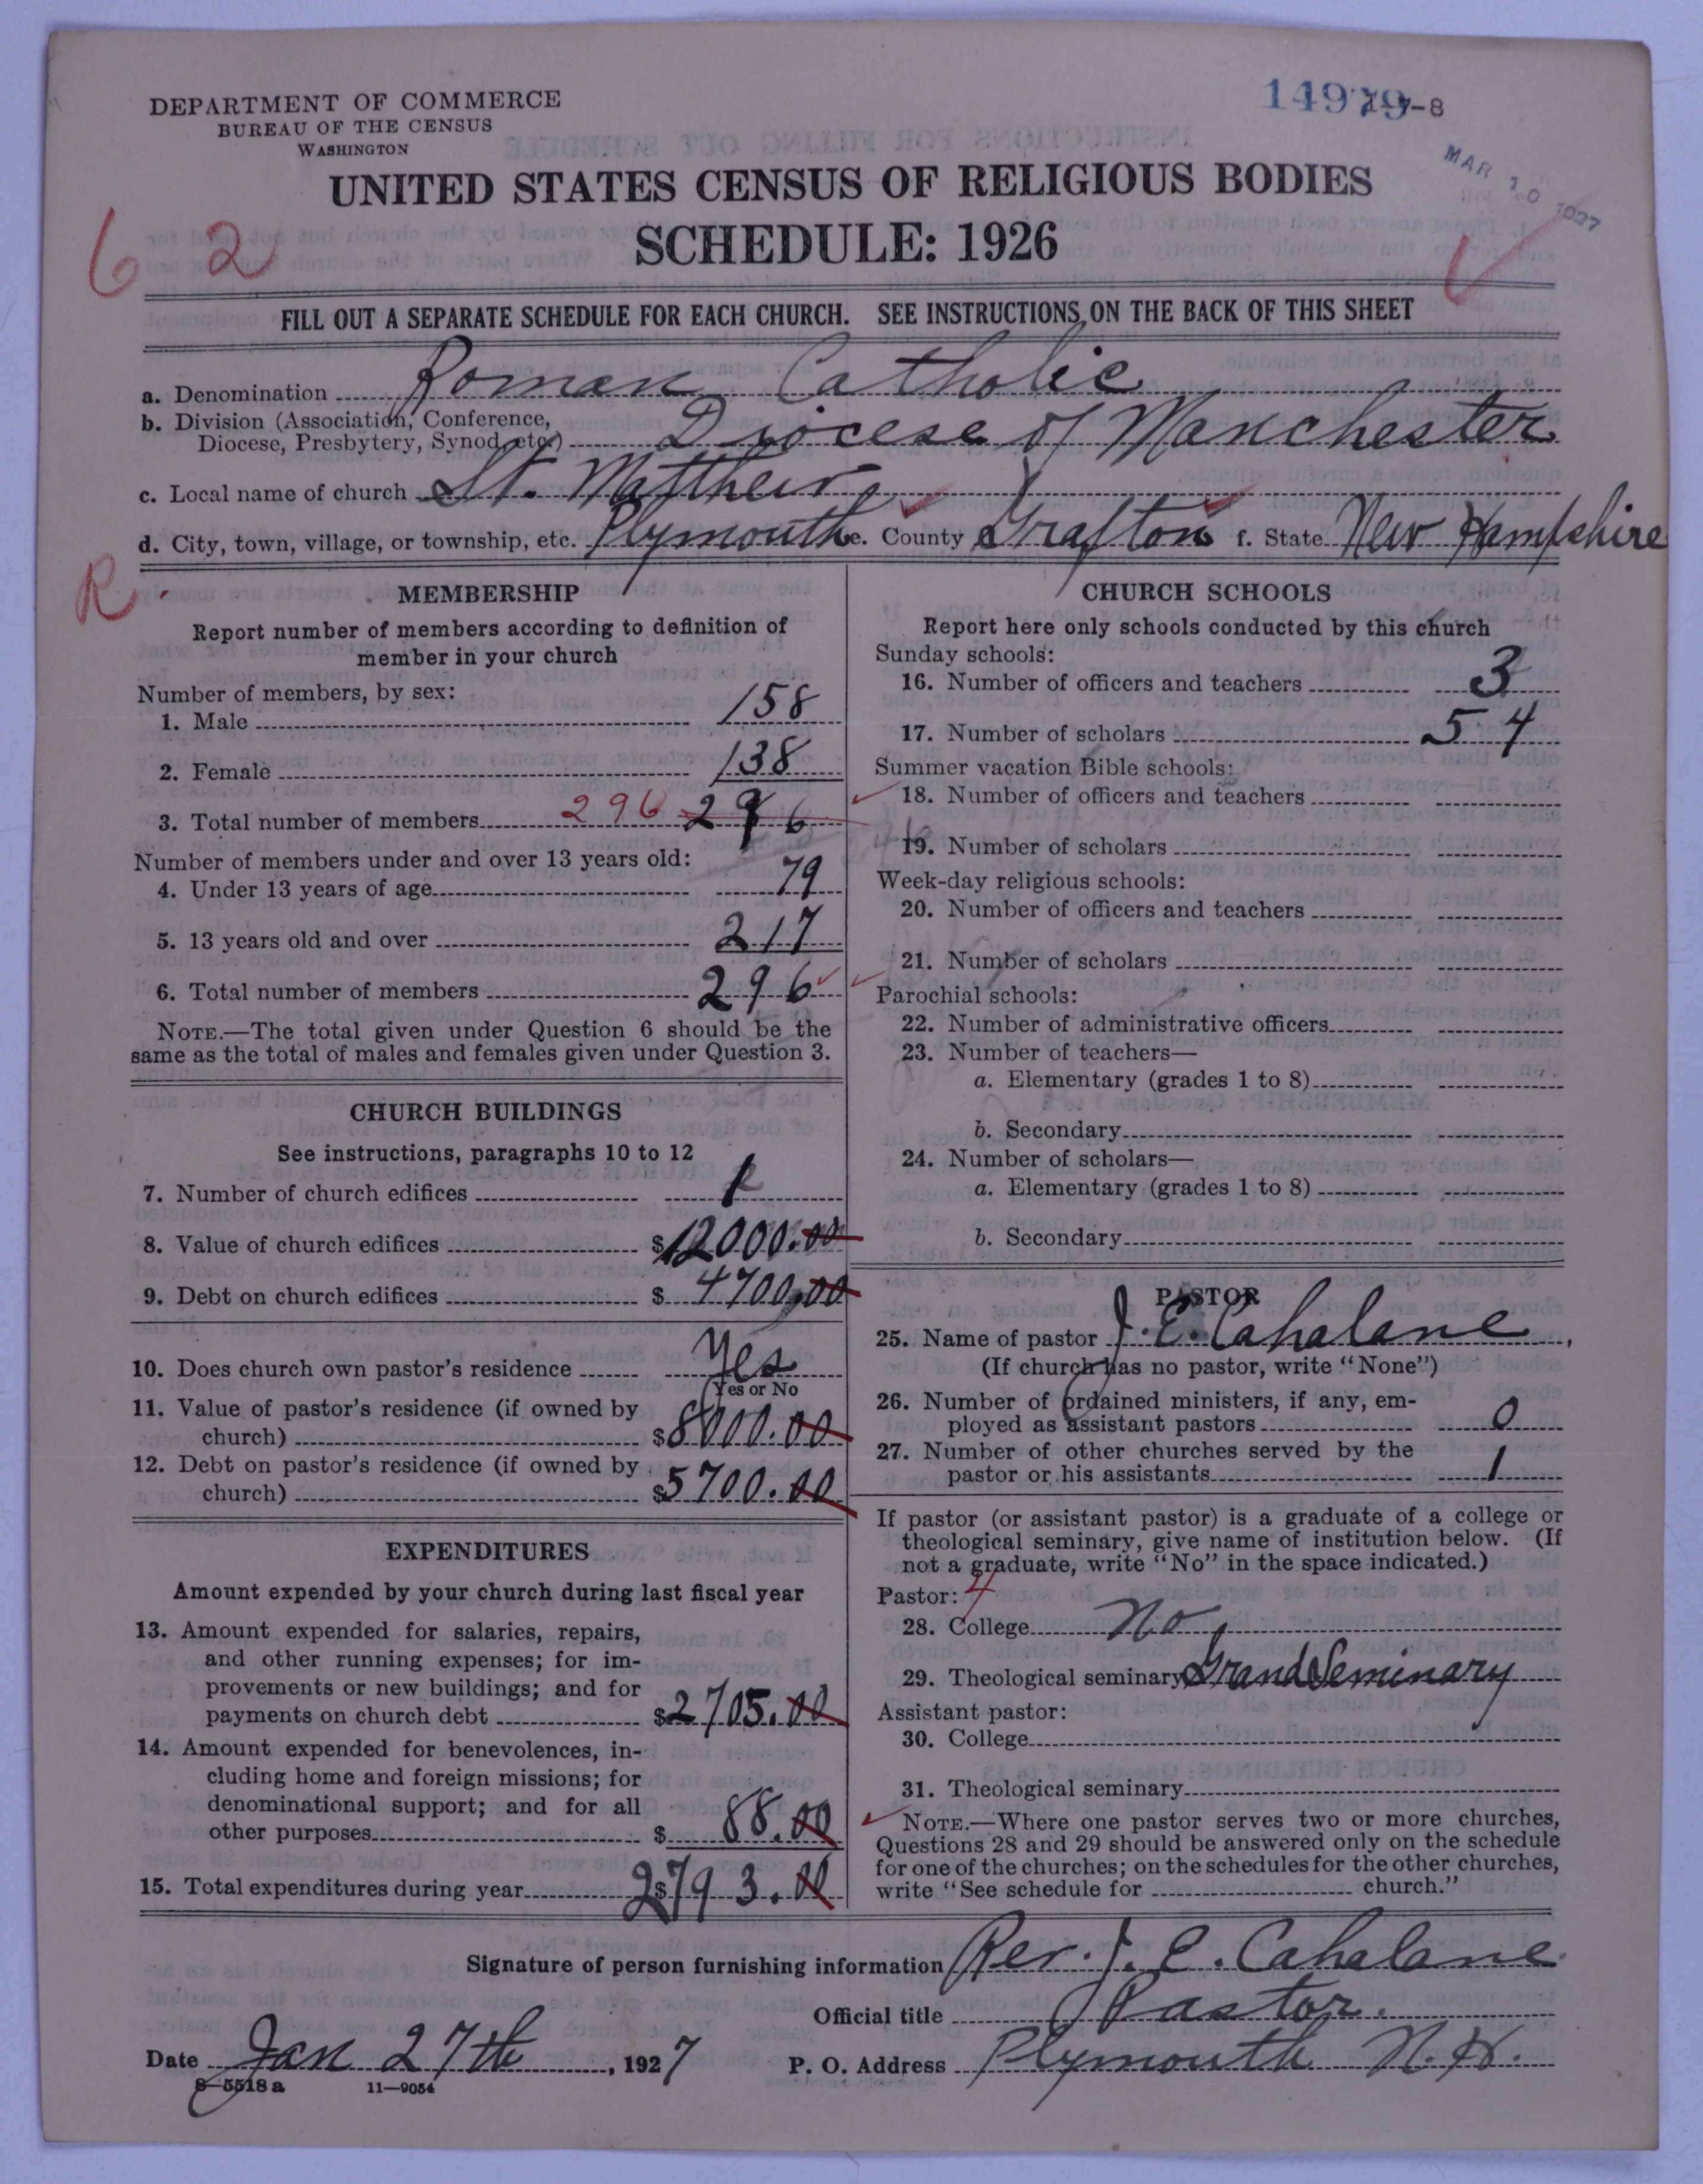 DEPARTMENT OF COMMERCE
BUREAU OF THE CENSUS
WASHINGTON
14979
-8
MAR 10 1927
UNITED STATES CENSUS OF RELIGIOUS BODIES
SCHEDULE: 1926
6 2
FILL OUT A SEPARATE SCHEDULE FOR EACH CHURCH. SEE INSTRUCTIONS ON THE BACK OF THIS SHEET
a. Denomination Roman Catholic
b. Division (Association, Conference,
Diocese, Presbytery, Synod, etc.) Diocese of Manchester
c. Local name of church St. Matthew
d. City, town, village, or township, etc. Plymouth e. County Grafton f. State New Hampshire
R.
MEMBERSHIP
Report number of members according to definition of
member in your church
Number of members, by sex:
1. Male 158
2. Female 138
3. Total number of members 296 296
Number of members under and over 13 years old:
4. Under 13 years of age 79
5. 13 years old and over 217
6. Total number of members 296
NOTE.—The total given under Question 6 should be the
same as the total of males and females given under Question 3.
CHURCH BUILDINGS
See instructions, paragraphs 10 to 12
7. Number of church edifices 1
8. Value of church edifices $12000.00
9. Debt on church edifices $4700.00
10. Does church own pastor's residence Yes
Yes or No
11. Value of pastor's residence (if owned by
church) $8000.00
12. Debt on pastor's residence (if owned by
church) $5700.00
EXPENDITURES
Amount expended by your church during last fiscal year
13. Amount expended for salaries, repairs,
and other running expenses; for im-
provements or new buildings; and for
payments on church debt $2705.00
14. Amount expended for benevolences, in-
cluding home and foreign missions; for
denominational support; and for all
other purposes $88.00
15. Total expenditures during year $2793.00
CHURCH SCHOOLS
Report here only schools conducted by this church
Sunday schools:
16. Number of officers and teachers 3
17. Number of scholars 54
Summer vacation Bible schools:
18. Number of officers and teachers
19. Number of scholars
Week-day religious schools:
20. Number of officers and teachers
21. Number of scholars
Parochial schools:
22. Number of administrative officers
23. Number of teachers—
a. Elementary (grades 1 to 8)
b. Secondary
24. Number of scholars—
a. Elementary (grades 1 to 8)
b. Secondary
PASTOR
25. Name of pastor J. E. Cahalane,
(If church has no pastor, write "None")
26. Number of ordained ministers, if any, em-
ployed as assistant pastors 0
27. Number of other churches served by the
pastor or his assistants 1
If pastor (or assistant pastor) is a graduate of a college or
theological seminary, give name of institution below. (If
not a graduate, write "No" in the space indicated.)
Pastor: 4
28. College No
29. Theological seminary Grand Seminary
Assistant pastor:
30. College
31. Theological seminary
NOTE.—Where one pastor serves two or more churches,
Questions 28 and 29 should be answered only on the schedule
for one of the churches; on the schedules for the other churches,
write "See schedule for church."
Signature of person furnishing information Rev. J. E. Cahalane.
Official title Pastor.
Date Jan 27th, 1927 P. O. Address Plymouth N.H.
8-5518 a 11—9054